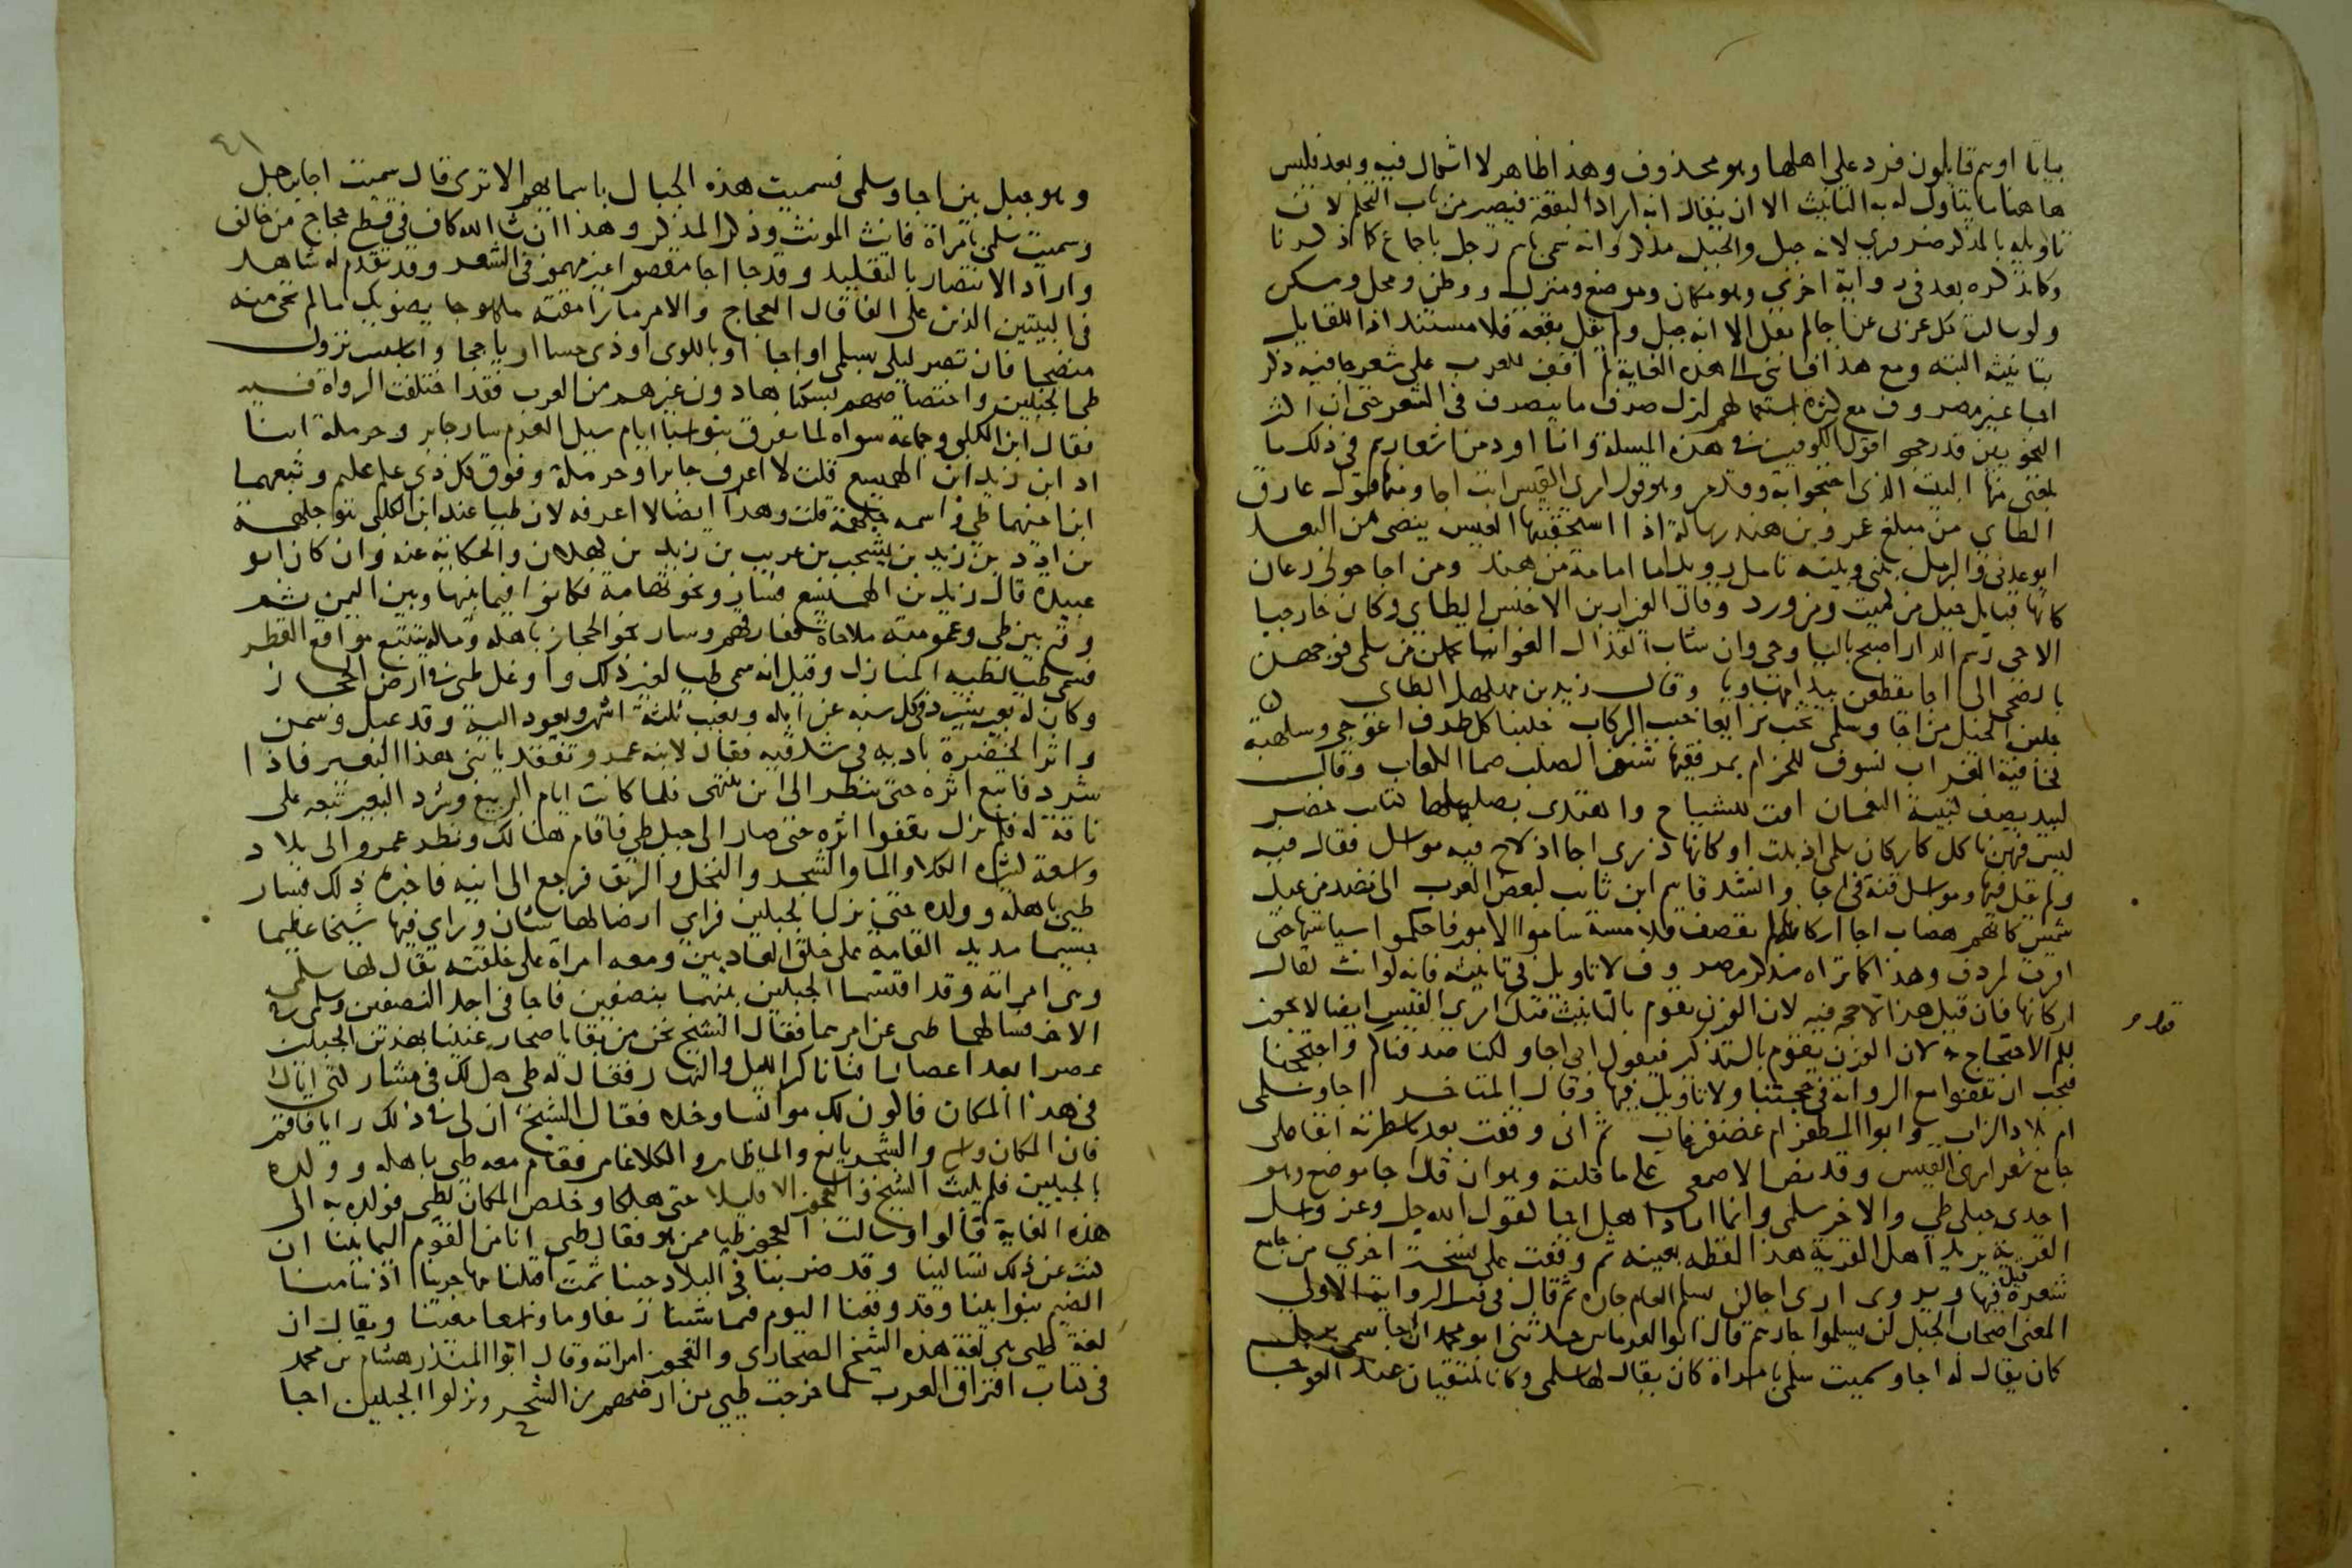 بياتا اوهم قايلون فرد على اهلها وهو محذوف وهذا ظاهر لا اشكال فيه وبعد فليس
هاهنا ما يتاول له به التانيث الا ان يقال انه اراد البقعة فيصير من باب التحكم لان
تاويله بالمذكر ضروري لانه جبل والجبل مذكر وانه سمي باسم رجل باجماع كما ذكرنا
وكما نذكره بعد في رواية اخرى وهو مكان وموضع ومنزل ووطن ومحل ومسكن
ولو سالت كل عربي عن اجا لم يقل الا انه جبل ولم يقل بقعة فلا مستند اذا للقايل
بتانيثه البتة ومع هذا فانني الى هذه الغاية لم اقف للعرب على شعر جا فيه ذكر
اجا غير مصروف مع كثرة استعمالهم لترك صرف ما ينصرف في الشعر حتى ان اكثر
النحويين قد رجحوا قول الكوفيين في هذه المسلة وانا اورد من اشعارهم في ذلك ما
بلغني منها البيت الذي احتجوا به وقد مر وهو قول امرى القيس ابت اجا ومنها قول عارق
الطاي من مبلغ عمرو بن هند رسالة اذا استحقبتها العيس ينضى من البعد
ايوعدني والرمل بيني وبينه تامل رويدا ما امامة من هند ومن اجا حولي رعان
كانها قبايل خيل من كميت ومن ورد وقال العيزار بن الاخنس الطاي وكان خارجيا
الاحي رسم الدار اصبح باليا وحي وان شاب القذال الغوانيا تحملن من سلمى فوجهن
بالضحى الى اجا يقطعن بيدا مهاويا وقال زيد بن مهلهل الطاي
جلبن الخيل من اجا وسلمى تخب نزايعا خبب الركاب جلبنا كل طرف اعوجي وسلهبة
كخافية الغراب نسوف للحزام بمرفقيها شنون الصلب صما الكعاب وقال
لبيد يصف كتيبة النعمان اوت للشياح واهتدى بصليلها كتايب خضر
ليس فيهن ناكل كاركان سلمى اذ بدت او كانها ذرى اجا اذ لاح فيه مواسل فقال فيه
ولم يقل فيها ومواسل قنة في اجا وانشد قاسم ابن ثابت لبعض العرب الى نضد من عبد
شمس كانهم هضاب اجا اركانه لم تقصف قلامسة ساسوا الامور فاحكموا سياستها حتى
اقرت لمردف وهذا كما تراه مذكر مصروف لا تاويل في تانيثه فانه لو انث لقال
اركانها فان قيل هذا لا حجة فيه لان الوزن يقوم بالتانيث قيل قول امرى القيس ايضا لا يجوز
لكم الاحتجاج به لان الوزن يقوم بالتذكير فيقول ابى اجا ولكنا صدقناكم واحتججنا
فيجب ان تقفوا مع الرواية في حجتنا ولا تاويل فيها وقال المتاخر اجا وسلمى
ام بلاد الزاب وابو المظفر ام غضنفر غاب ثم اني وقفت بعد ما سطرته انفا على
جامع شعر امرى القيس وقد نص الاصمعي على ما قلته وهو ان قال اجا موضع وهو
احدى جبلي طي والاخر سلمى وانما اراد اهل اجا لقول الله جل وعز وسل
القرية يريد اهل القرية هذا لفظه بعينه ثم وقفت على نسخة اخرى من جامع
شعره قيل فيها ويروى ارى اجا لن يسلم العام جاره ثم قال في تفسير الرواية الاولى
المعنى اصحاب الجبل لن يسلموا جارهم قال ابو العرماس حدثني ابو محمد ان اجا سمي برجل
كان يقال له اجا وسميت سلمى بامراة كان يقال لها سلمى وكانا يلتقيان عند العوجا
قوله
٤١
وهو جبل بين اجا وسلمى فسميت هذه الجبال باسمايهم الا ترى قال سميت اجا برجل
وسميت سلمى بامراة فانث المونث وذكر المذكر وهذا ان شا الله كاف في قطع حجاج من خالف
واراد الانتصار بالتقليد وقد جا اجا مقصورا غير مهموز في الشعر وقد تقدم له شاهد
في البيتين الذين على الفا قال العجاج والامر ما رامقته ملهوجا يضويك ما لم تحي منه
منضجا فان تصر ليلى بسلمى او اجا او باللوى او ذي حسا او ياججا واما سبب نزول
طي الجبلين واختصاصهم بسكناها دون غيرهم من العرب فقد اختلفت الرواة فيه
فقال ابن الكلبي وجماعة سواه لما تفرق بنو سبا ايام سيل العرم سار جابر وحرملة ابنا
ادد ابن زيد ابن الهميسع قلت لا اعرف جابرا وحرملة وفوق كل ذي علم عليم وتبعهما
ابنا اخيهما طي واسمه جلهمة قلت وهذا ايضا لا اعرفه لان طييا عند ابن الكلبي هو جلهمة
بن ادد بن زيد بن يشجب بن عريب بن زيد بن كهلان والحكاية عنه وان كان ابو
عبيدة قال زيد بن الهميسع فساروا نحو تهامة فكانوا فيما بينها وبين اليمن ثم
وقع بين طي وعمومته ملاحاة ففارقهم وسار نحو الحجاز باهله وماله يتتبع مواقع القطر
فسمي طييا لطيه المنازل وقيل انه سمي طييا لغير ذلك واوغل طي في ارض الحجاز
وكان له بعير يشرد في كل سنة عن ابله ويغيب ثلثة اشهر ويعود اليه وقد عبل وسمن
واثر الخضرة بادية في شدقيه فقال لابنه عمرو تفقد يا بني هذا البعير فاذا
شرد فاتبع اثره حتى تنظر الى اين ينتهي فلما كانت ايام الربيع وشرد البعير تبعه على
ناقة له فلم يزل يقفوا اثره حتى صار الى جبل طي فاقام هنالك ونظر عمرو الى بلاد
واسعة كثيرة الكلا والما والشجر والنخل والريف فرجع الى ابيه فاخبره ذلك فسار
طي باهله وولده حتى نزل الجبلين فراى ارضا لها شان وراى فيها شيخا عظيما
جسيما مديد القامة على خلق العاديين ومعه امراة على خلقته يقال لها سلمى
وهي امراته وقد اقتسما الجبلين بينهما بنصفين فاجا في احد النصفين وسلمى في
الاخر فسالهما طي عن امرهما فقال الشيخ نحن من بقايا صحار غنينا بهذين الجبلين
عصرا بعد اعصار افنانا كر الليل والنهار فقال له طي هل لك في مشاركتي اياك
في هذا المكان فاكون لك موانسا وخلا فقال الشيخ ان لي في ذلك رايا فاقم
فان المكان واسع والشجر يانع والما ظاهر والكلا غامر فقام معه طي باهله وولده
بالجبلين فلم يلبث الشيخ والعجوز الا قليلا حتى هلكا وخلص المكان لطي فولده به الى
هذه الغاية قالوا وسالت العجوز طييا ممن هو فقال طي انا من القوم اليمانينا ان
كنت عن ذلك تسالينا وقد ضربنا في البلاد حينا ثمت اقبلنا مهاجرينا اذ سامنا
الضيم بنو ابينا وقد وقعنا اليوم فيما شينا ريفا وما واسعا معينا ويقال ان
لغة طي هي لغة هذه الشيخ الصحاري والعجوز امراته وقال ابو المنذر هشام بن محمد
في كتاب افتراق العرب لما خرجت طي من ارضهم من الشحر ونزلوا الجبلين اجا